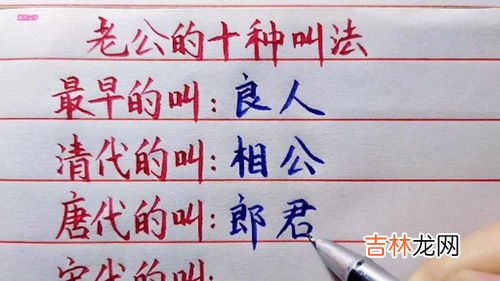 老公的十种叫法
最早的叫：良人
清代的叫：相公
唐代的叫：郎君
宋代的叫：
吉林龙网